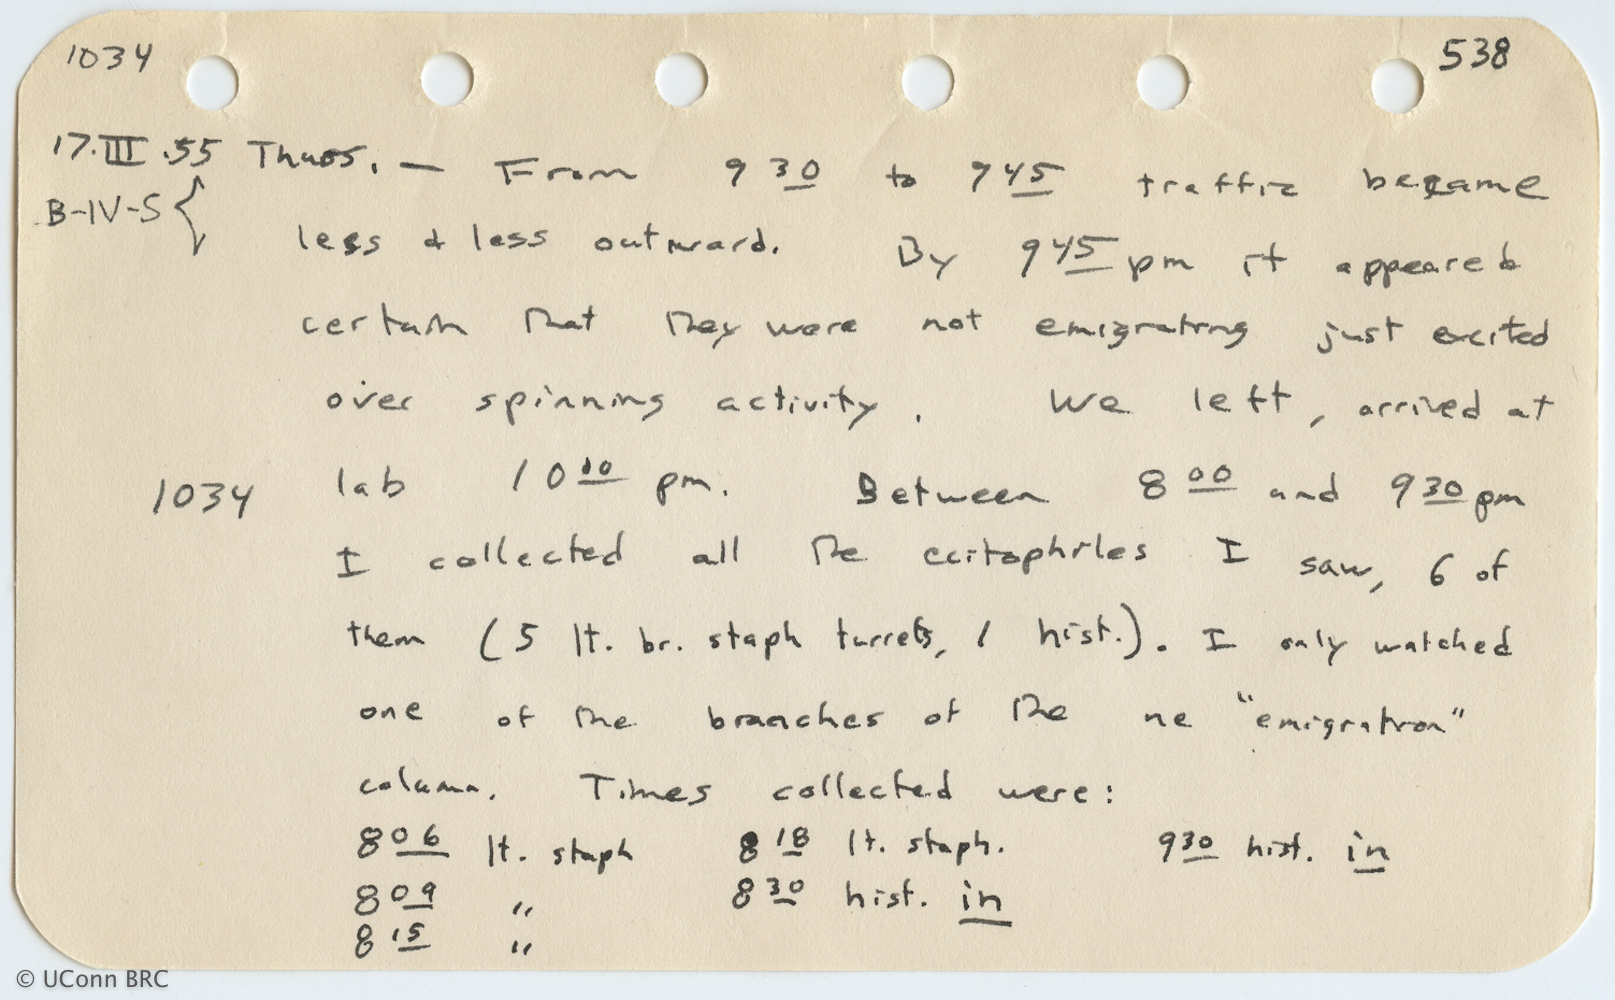 1034 538
17.III.55 Thurs. — From 9 30 to 9 45 traffic became
B-IV-5 { less & less outward. By 9 45 pm it appeared
certain that they were not emigrating just excited
over spinning activity. We left, arrived at
1034 lab 10 00 pm. Between 8 00 and 9 30 pm
I collected all the ecitophiles I saw, 6 of
them (5 lt. br. staph turrets, 1 hist.). I only watched
one of the branches of the ne "emigration"
column. Times collected were:
8 06 lt. staph 8 18 lt. staph. 9 30 hist. in
8 09 " 8 30 hist. in
8 15 "
© UConn BRC